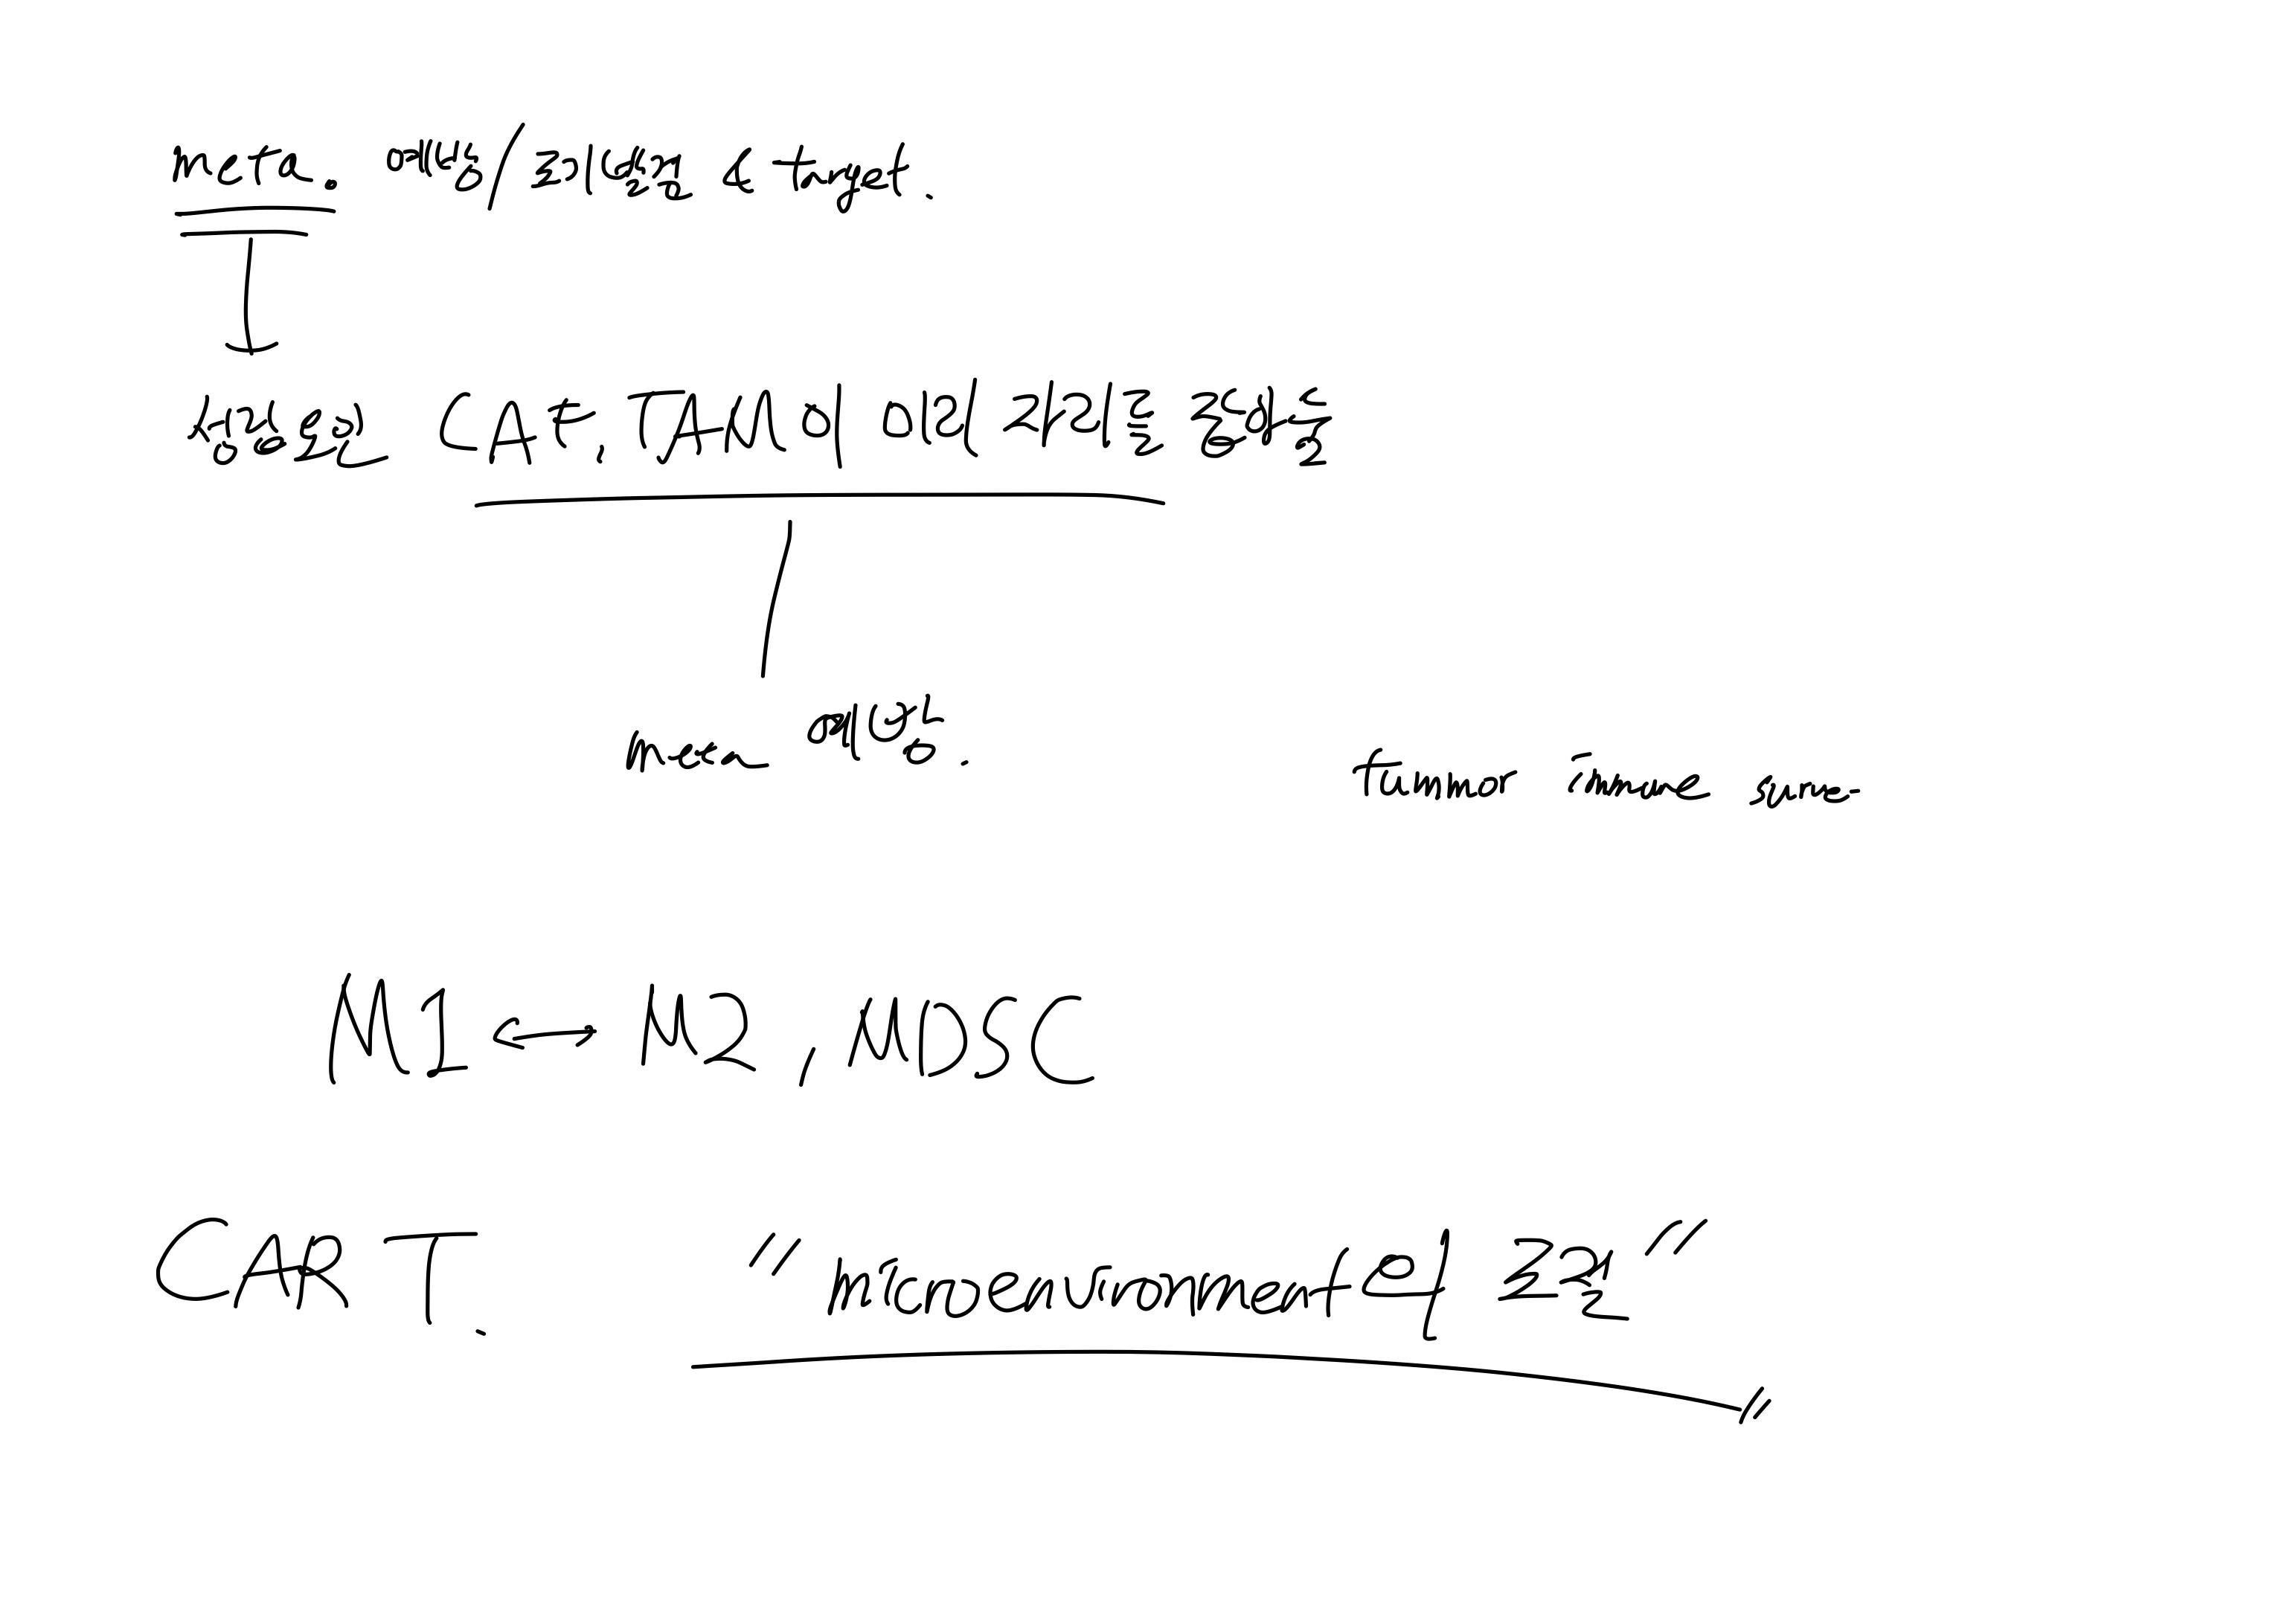 meta. 예방/조기진단 & target.
CAF, TAM이 미리 자리를 잡아둠
meta 예방.
Tummor immune surve-
M1 ↔ M2, MDSC
CAR T. "microenvironment의 조절"